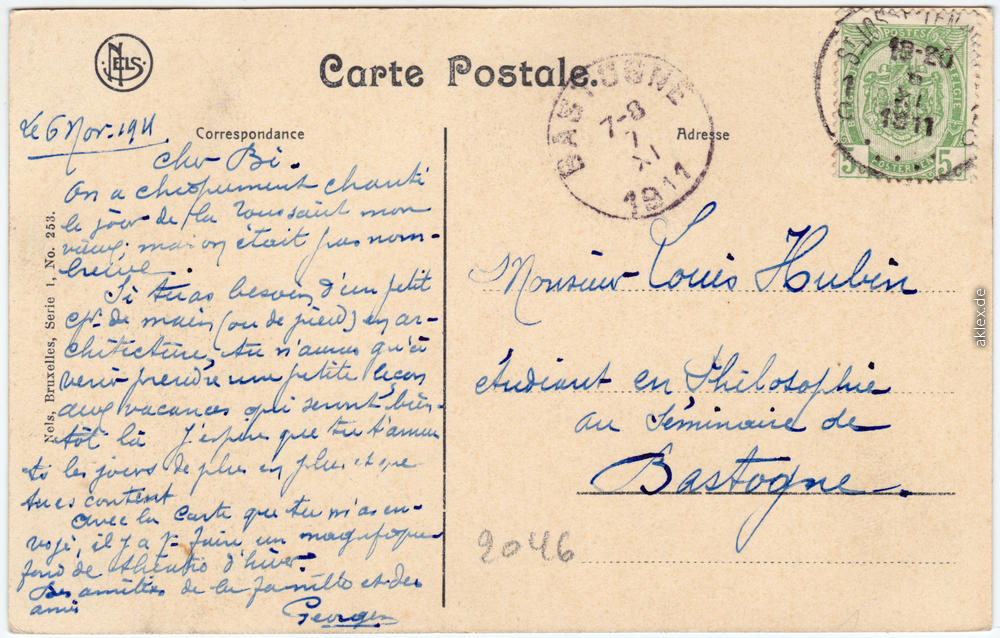 NELS
Carte Postale.
Correspondance
Adresse
Nels, Bruxelles, Serie 1, No. 253.
BASTOGNE
7-8
7
XI
1911
ST JOSSE-TEN
18-20
XI
1911
POSTES
BELGIE
POSTERIJEN
5 5
Le 6 Nov. 1911
Cher Bi.
On a chiquement chanté
le jour de la Toussaint mon
vieux, mais on était pas nom-
breux.
Si tu as besoin d'un petit
de main (ou de pied) en ar-
chitecture, tu n'auras qu'à
venir prendre une petite leçon
aux vacances qui seront bien-
tôt là J'espère que tu t'amu
les jours de plus en plus et que
tu es content
Avec la carte que tu m'as en-
voyé, il y a faire un magnifique
fond de théâtre d'hiver.
Des amitiés de la famille et des
amis
Georges
Monsieur Louis Hubin
étudiant en Philosophie
au Séminaire de
Bastogne.
2046
aklex.de